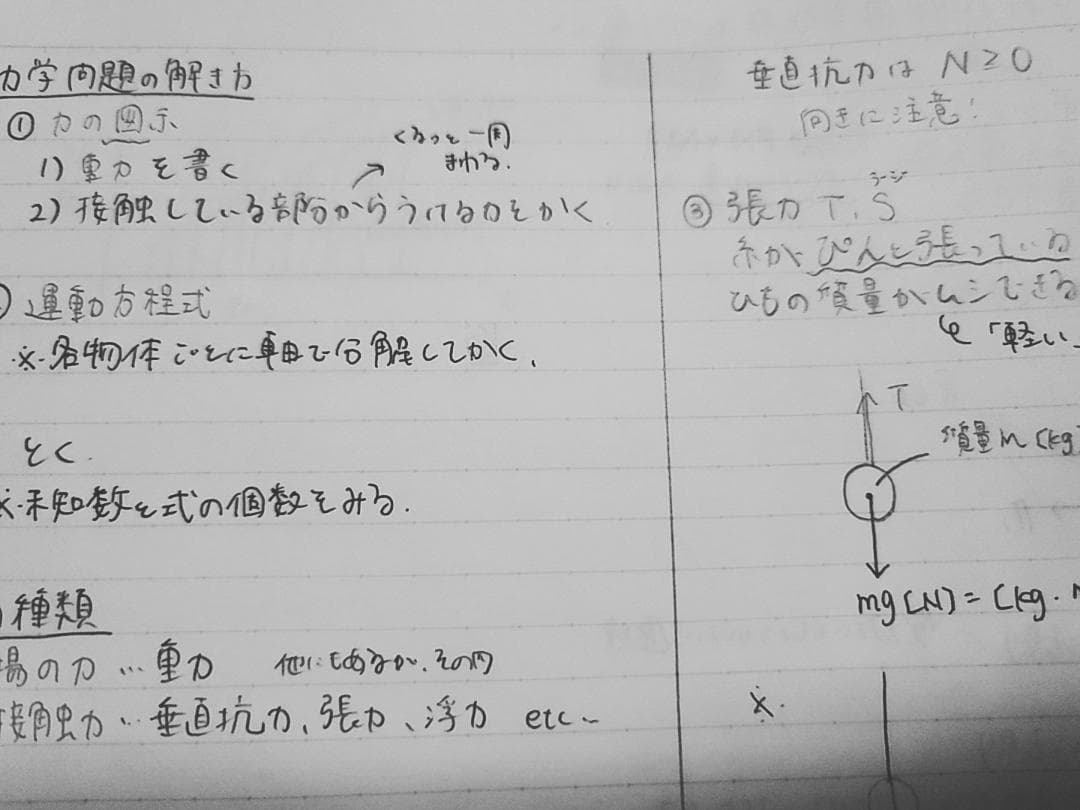 力学問題の解き方
① 力の図示
1) 重力を書く
くるっと一周
まわる.
2) 接触している部分からうける力をかく
運動方程式
※各物体ごとに軸で分解してかく.
とく.
※未知数と式の個数をみる.
種類
場の力 … 重力 他にもあるが、その内
接触力 … 垂直抗力、張力、浮力 etc~
垂直抗力は N≥0
向きに注意!
③ 張力 T, S
糸がぴんと張っている
ひもの質量がムシできる
「軽い
T
質量m (kg
mg [N] = [kg・
※.